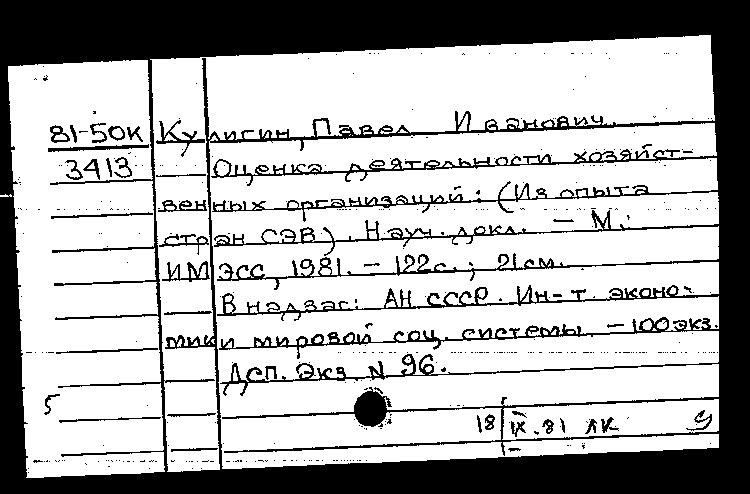 81-50К Кулигин, Павел Иванович.
3413 Оценка деятельности хозяйст-
венных организаций: (Из опыта
стран СЭВ). Науч. докл. — М.:
ИМЭСС, 1981. — 122с.; 21см.
В надзаг: АН СССР. Ин-т эконо-
мики мировой соц. системы. — 100 экз.
Дсп. Экз. N 96.
5
18 IX. 81 ЛК